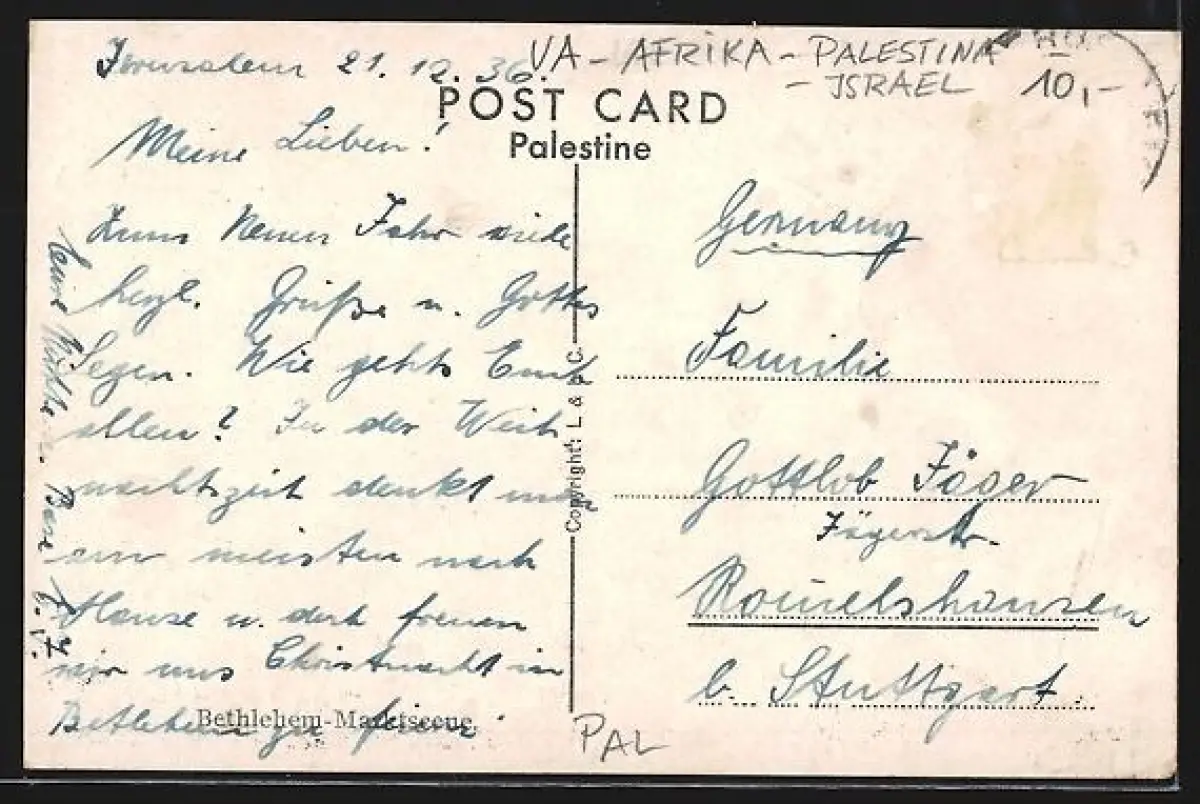 Jerusalem 21. 12. 36.
VA - AFRIKA - PALESTINA
- ISRAEL 10,-
POST CARD
Palestine
Meine Lieben!
Zum Neuen Jahr viele
herzl. Grüße u. Gottes
Segen. Wie gehts Euch
allen? In der Weih
nachtszeit denkt man
am meisten nach
Hause u. doch freuen
wir uns Christnacht in
Bethlehem zu feiern.
Bethlehem-Marktscene
Copyright: L. & C.
Germany
Familie
Gottlob Jäger
Jägerstr.
Rommelshausen
b. Stuttgart.
PAL